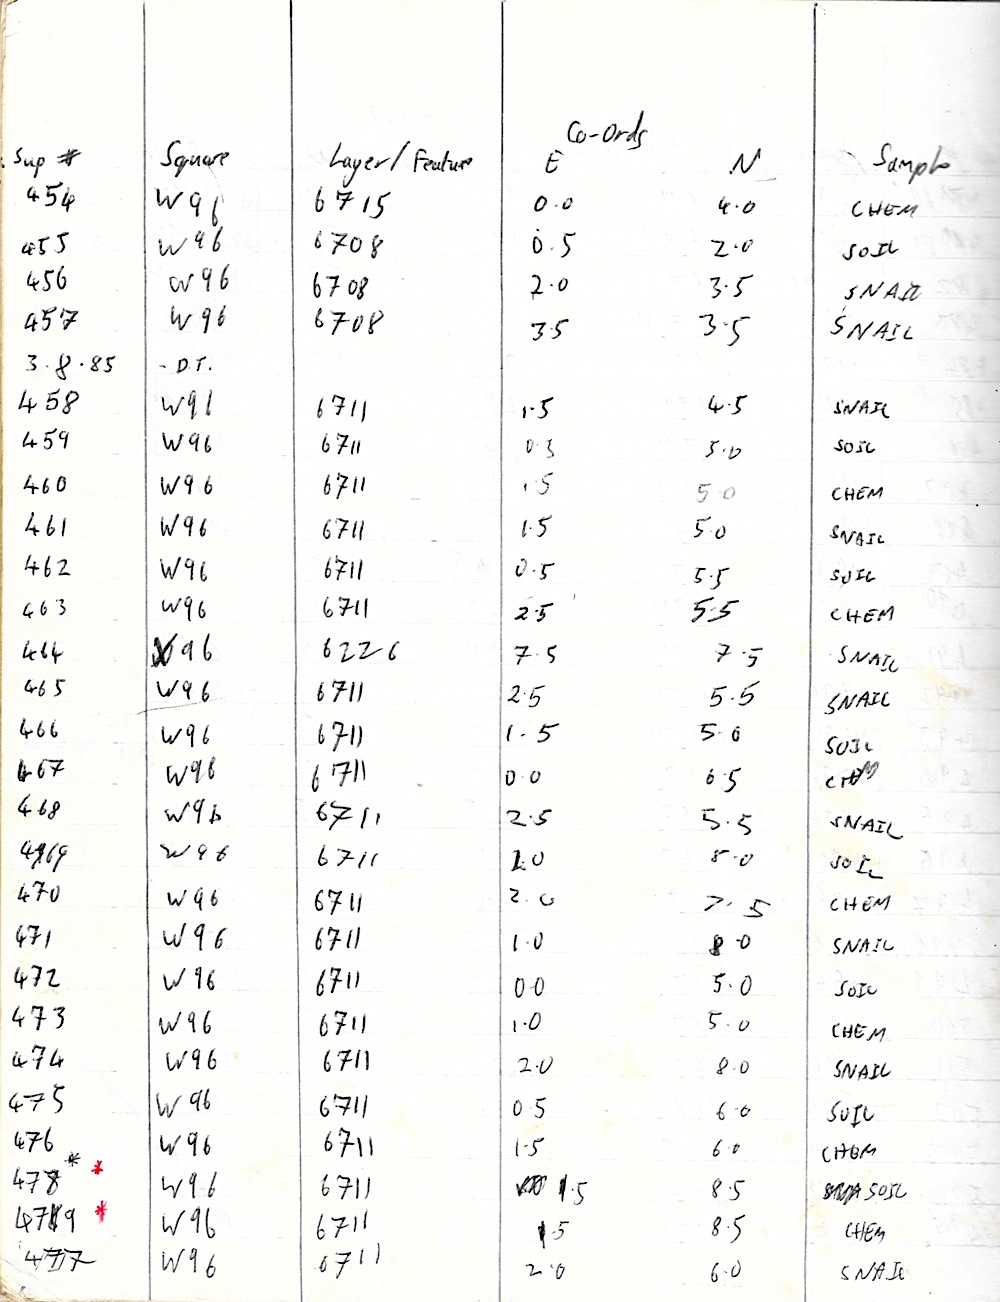 Co-Ords
Sup # Square Layer/Feature E N Sample
454 W96 6715 0.0 4.0 CHEM
455 W96 6708 0.5 2.0 SOIL
456 W96 6708 2.0 3.5 SNAIL
457 W96 6708 3.5 3.5 SNAIL
3.8.85 - D.T.
458 W96 6711 1.5 4.5 SNAIL
459 W96 6711 0.5 5.0 SOIL
460 W96 6711 1.5 5.0 CHEM
461 W96 6711 1.5 5.0 SNAIL
462 W96 6711 0.5 5.5 SOIL
463 W96 6711 2.5 5.5 CHEM
464 X96 6226 7.5 7.5 SNAIL
465 W96 6711 2.5 5.5 SNAIL
466 W96 6711 1.5 5.0 SOIL
467 W96 6711 0.0 6.5 CHEM
468 W96 6711 2.5 5.5 SNAIL
469 W96 6711 1.0 8.0 SOIL
470 W96 6711 2.0 7.5 CHEM
471 W96 6711 1.0 8.0 SNAIL
472 W96 6711 0.0 5.0 SOIL
473 W96 6711 1.0 5.0 CHEM
474 W96 6711 2.0 8.0 SNAIL
475 W96 6711 0.5 6.0 SOIL
476 W96 6711 1.5 6.0 CHEM
478 * * W96 6711 1.5 8.5 SOIL
479 * W96 6711 1.5 8.5 CHEM
477 W96 6711 2.0 6.0 SNAIL